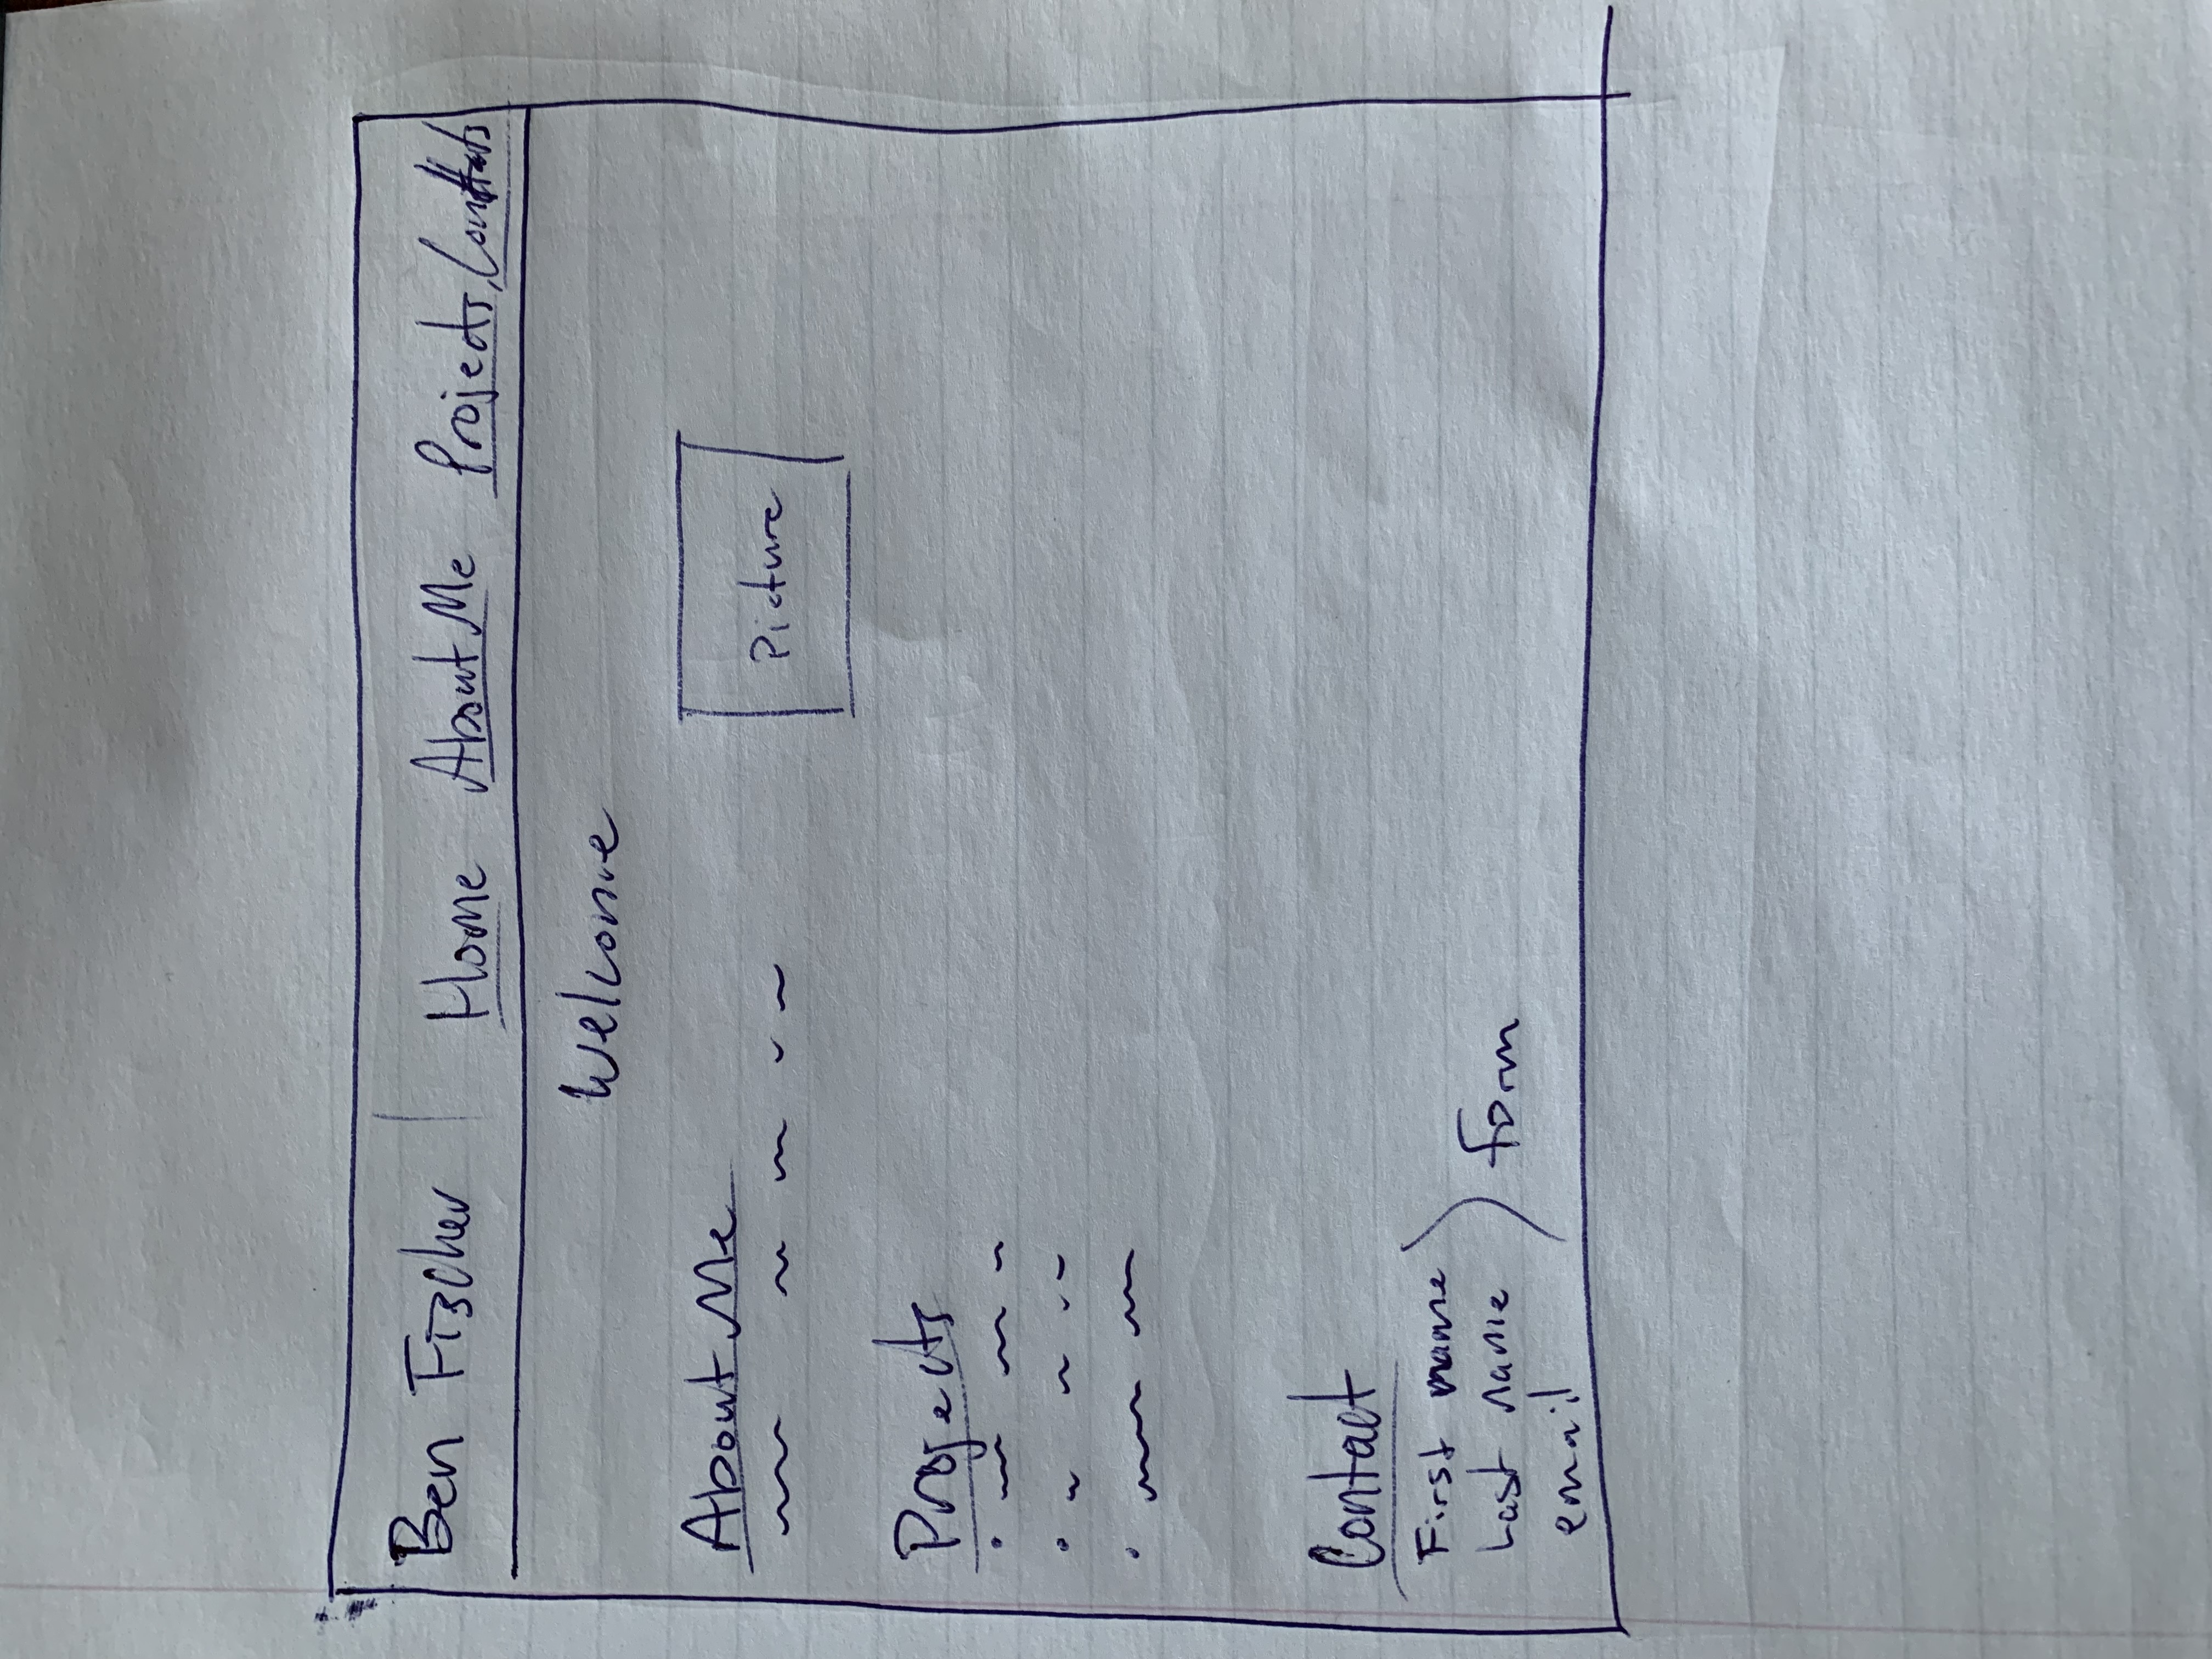 Ben Fischer Home About Me Projects
Welcome
About Me
Picture
Projects
Contact
First name
Last name
email
form